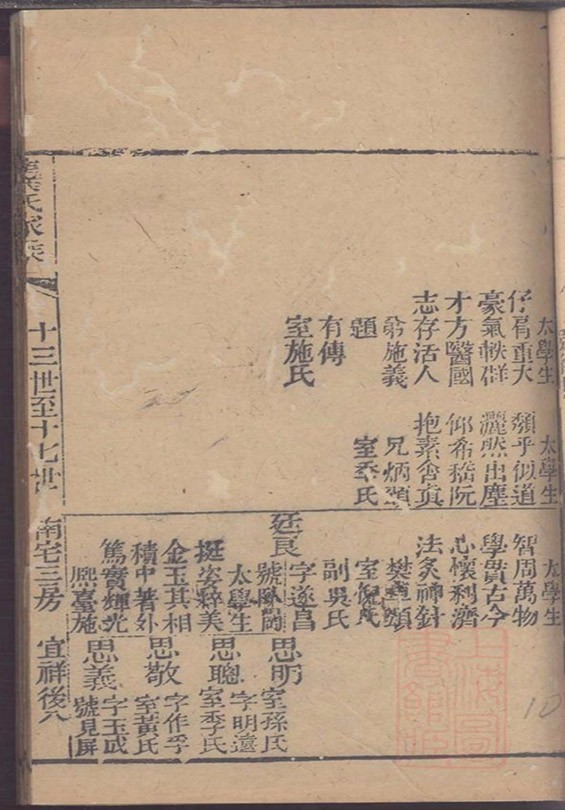 太學生
仔肩重大
豪氣軼群
才方醫國
志存活人
弟施義
題
有傳
室施氏
太學生
頹乎似道
灑然出塵
仰希嵇阮
抱素含真
兄炳題
室季氏
太學生
智周萬物
學貫古今
心懷利濟
法灸神針
樊題
室倪氏
副吳氏
字遂昌
廷良
號
太學生
挺姿粹美
金玉其相
積中著外
篤實輝光
熙臺施
思明
室孫氏
思聰
字明遠
室李氏
思敬
字作孚
室黃氏
思義
字玉成
號見屏
葉氏家族
十三世至十七世
南宅三房
宜祥後八
10
上海圖書館